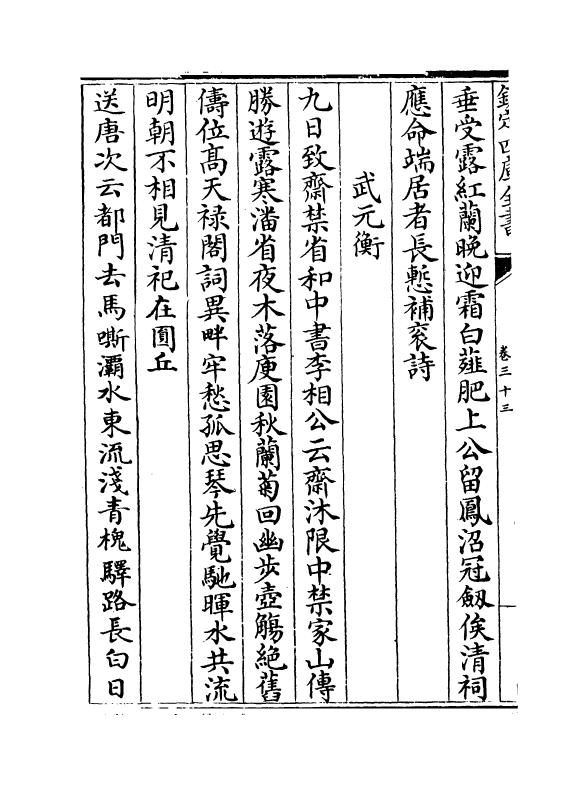 欽定四庫全書
卷三十三
垂受露紅蘭晚迎霜白薤肥上公留鳳沼冠劔俟清祠
應命端居者長慙補衮詩
武元衡
九日致齋禁省和中書李相公云齋沐限中禁家山傳
勝遊露寒潘省夜木落庾園秋蘭菊回幽步壺觴絶舊
儔位髙天禄閣詞異畔牢愁孤思琴先覺馳暉水共流
明朝不相見清祀在圓丘
送唐次云都門去馬嘶灞水東流淺青槐驛路長白日